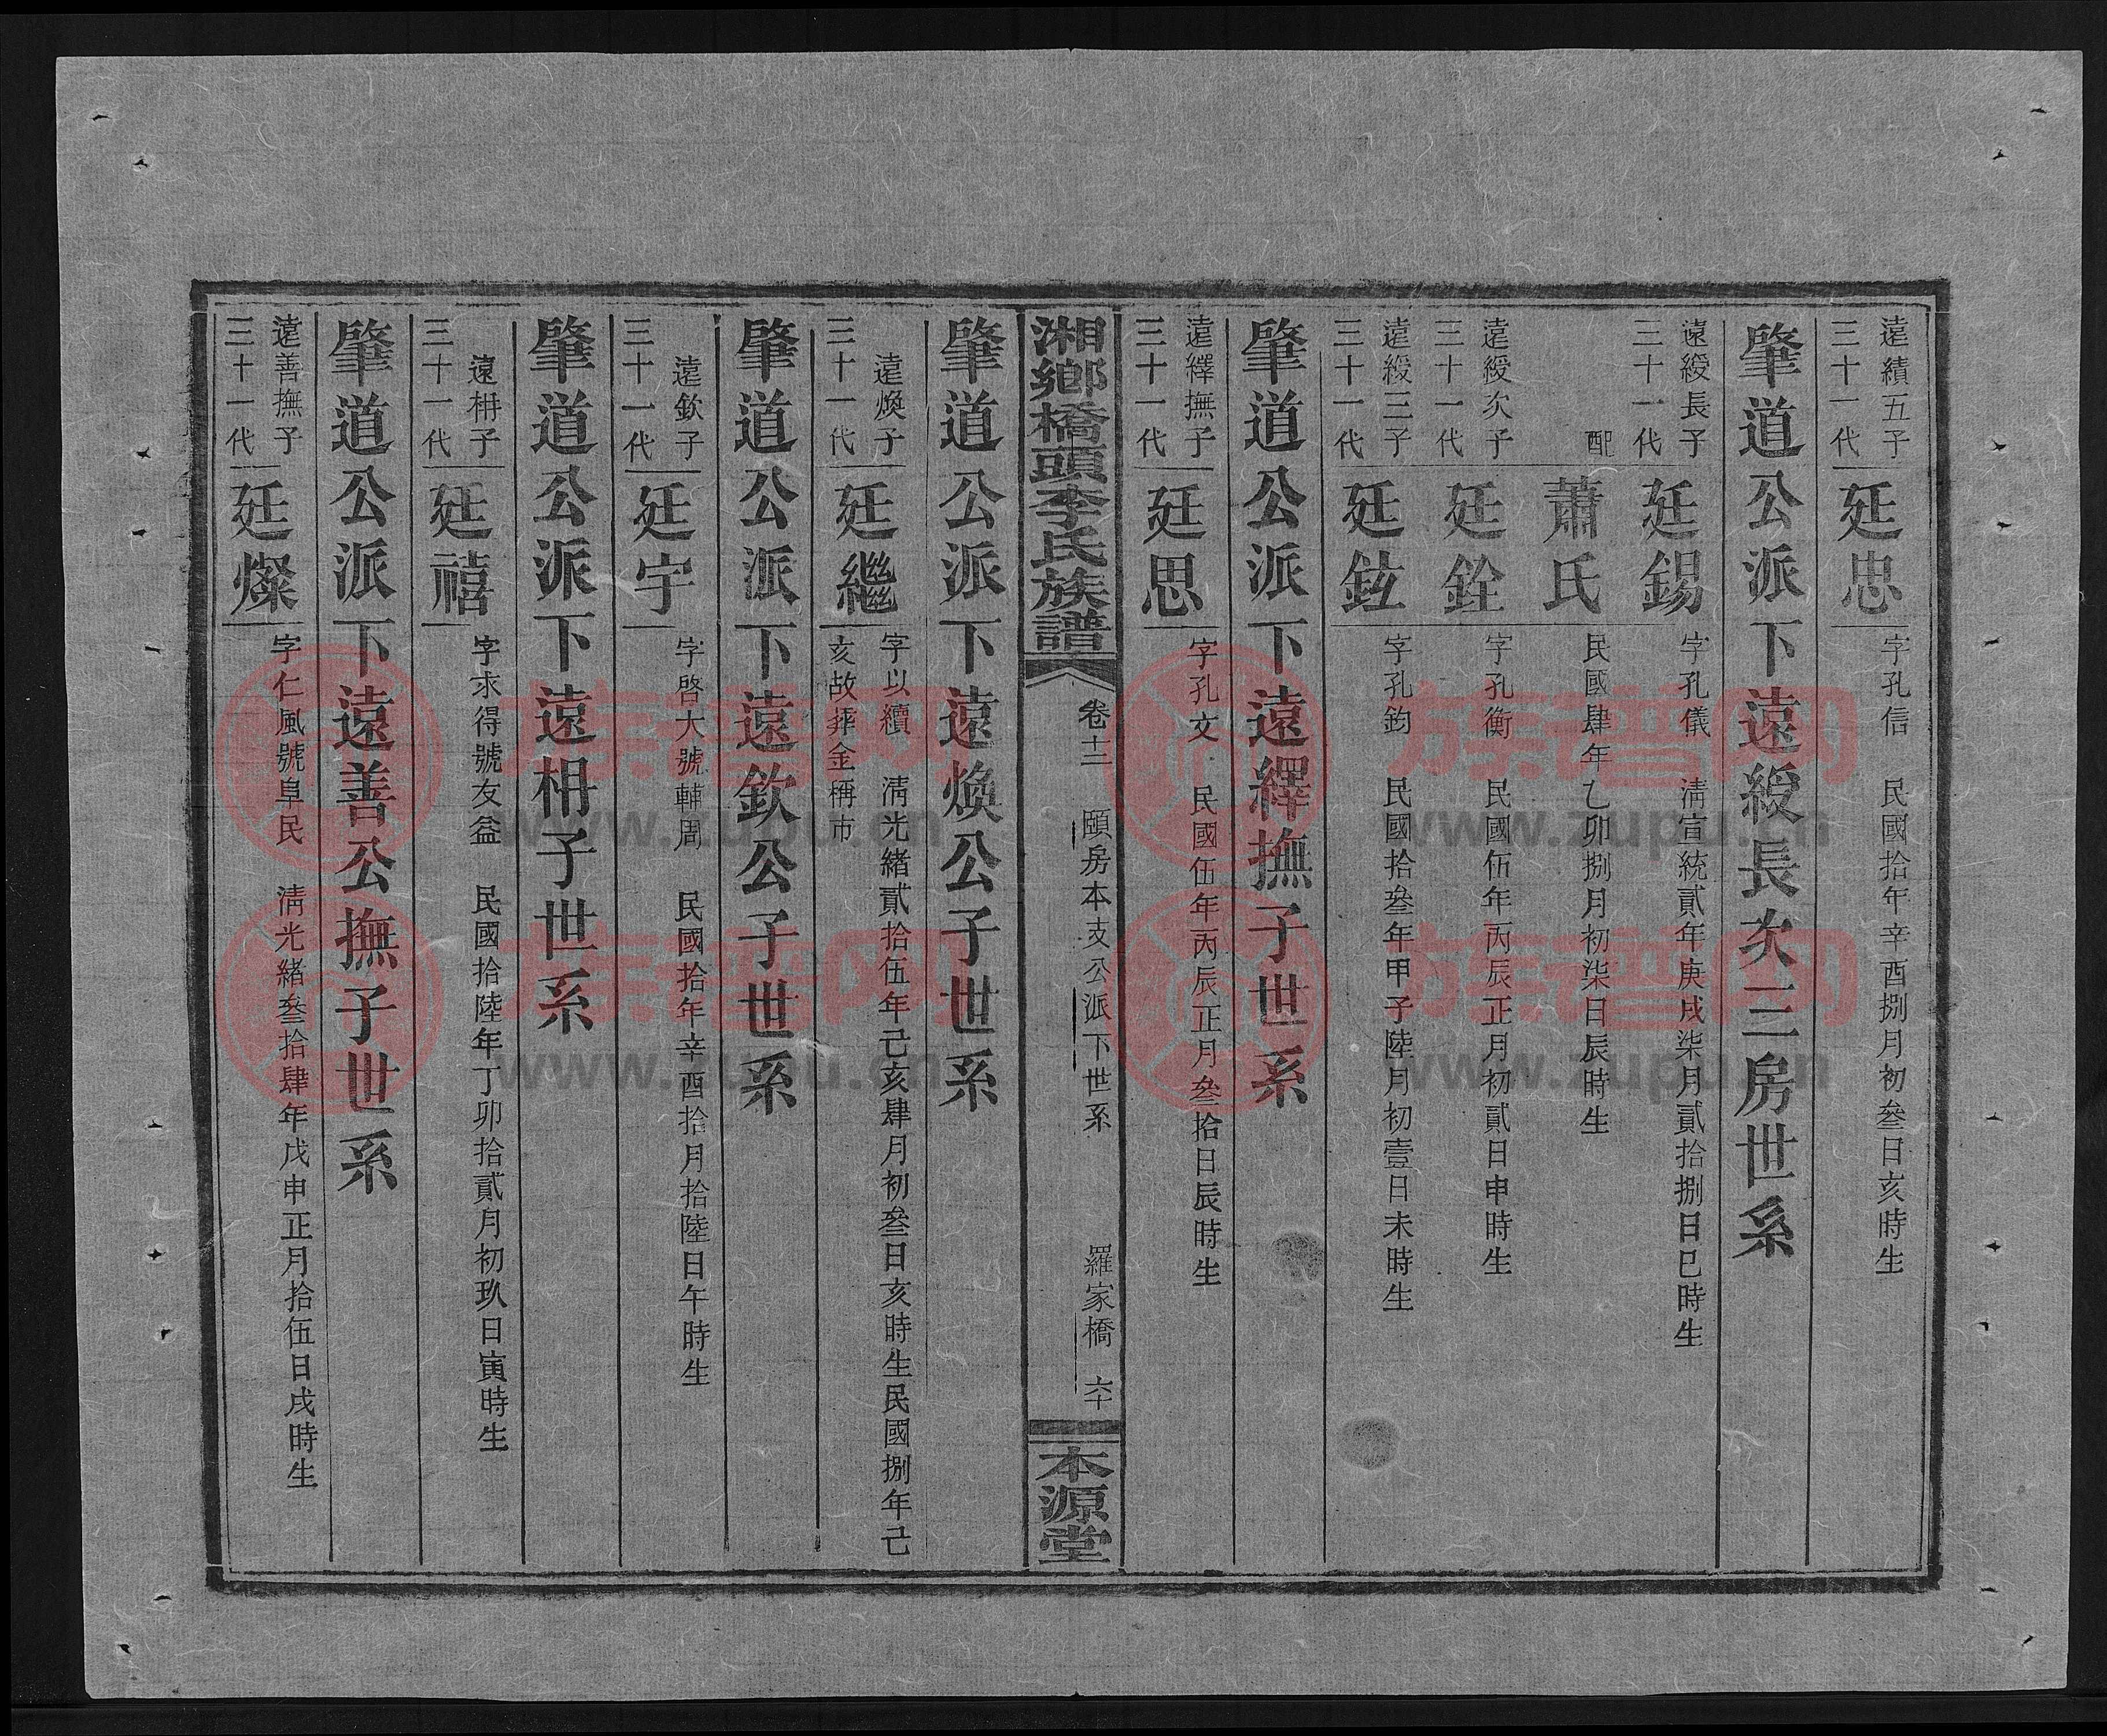 遠績五子
三十一代
廷忠
字孔信 民國拾年辛酉捌月初叄日亥時生
肇道公派下遠綬長次三房世系
遠綬長子
三十一代
廷錫
字孔儀 清宣統貳年庚戌柒月貳拾捌日巳時生
配
蕭氏
民國肆年乙卯捌月初柒日辰時生
遠綬次子
三十一代
廷銓
字孔衡 民國伍年丙辰正月初貳日申時生
遠綬三子
三十一代
廷鉉
字孔鈞 民國拾叄年甲子陸月初壹日未時生
肇道公派下遠繹撫子世系
遠繹撫子
三十一代
廷思
字孔文 民國伍年丙辰正月叄拾日辰時生
湘鄉橋頭李氏族譜
卷十二 頤房本支公派下世系 羅家橋 六十
本源堂
肇道公派下遠煥公子世系
遠煥子
三十一代
廷繼
字以續 清光緒貳拾伍年己亥肆月初叄日亥時生民國捌年己
亥故葬金稱市
肇道公派下遠欽公子世系
遠欽子
三十一代
廷宇
字啓大號輔周 民國拾年辛酉拾月拾陸日午時生
肇道公派下遠枏子世系
遠枏子
三十一代
廷禧
字求得號友益 民國拾陸年丁卯拾貳月初玖日寅時生
肇道公派下遠善公撫子世系
遠善撫子
三十一代
廷燦
字仁風號阜民 清光緒叄拾肆年戊申正月拾伍日戌時生
族譜网
www.zupu.cn
族譜网
www.zupu.cn
族譜网
www.zupu.cn
族譜网
www.zupu.cn